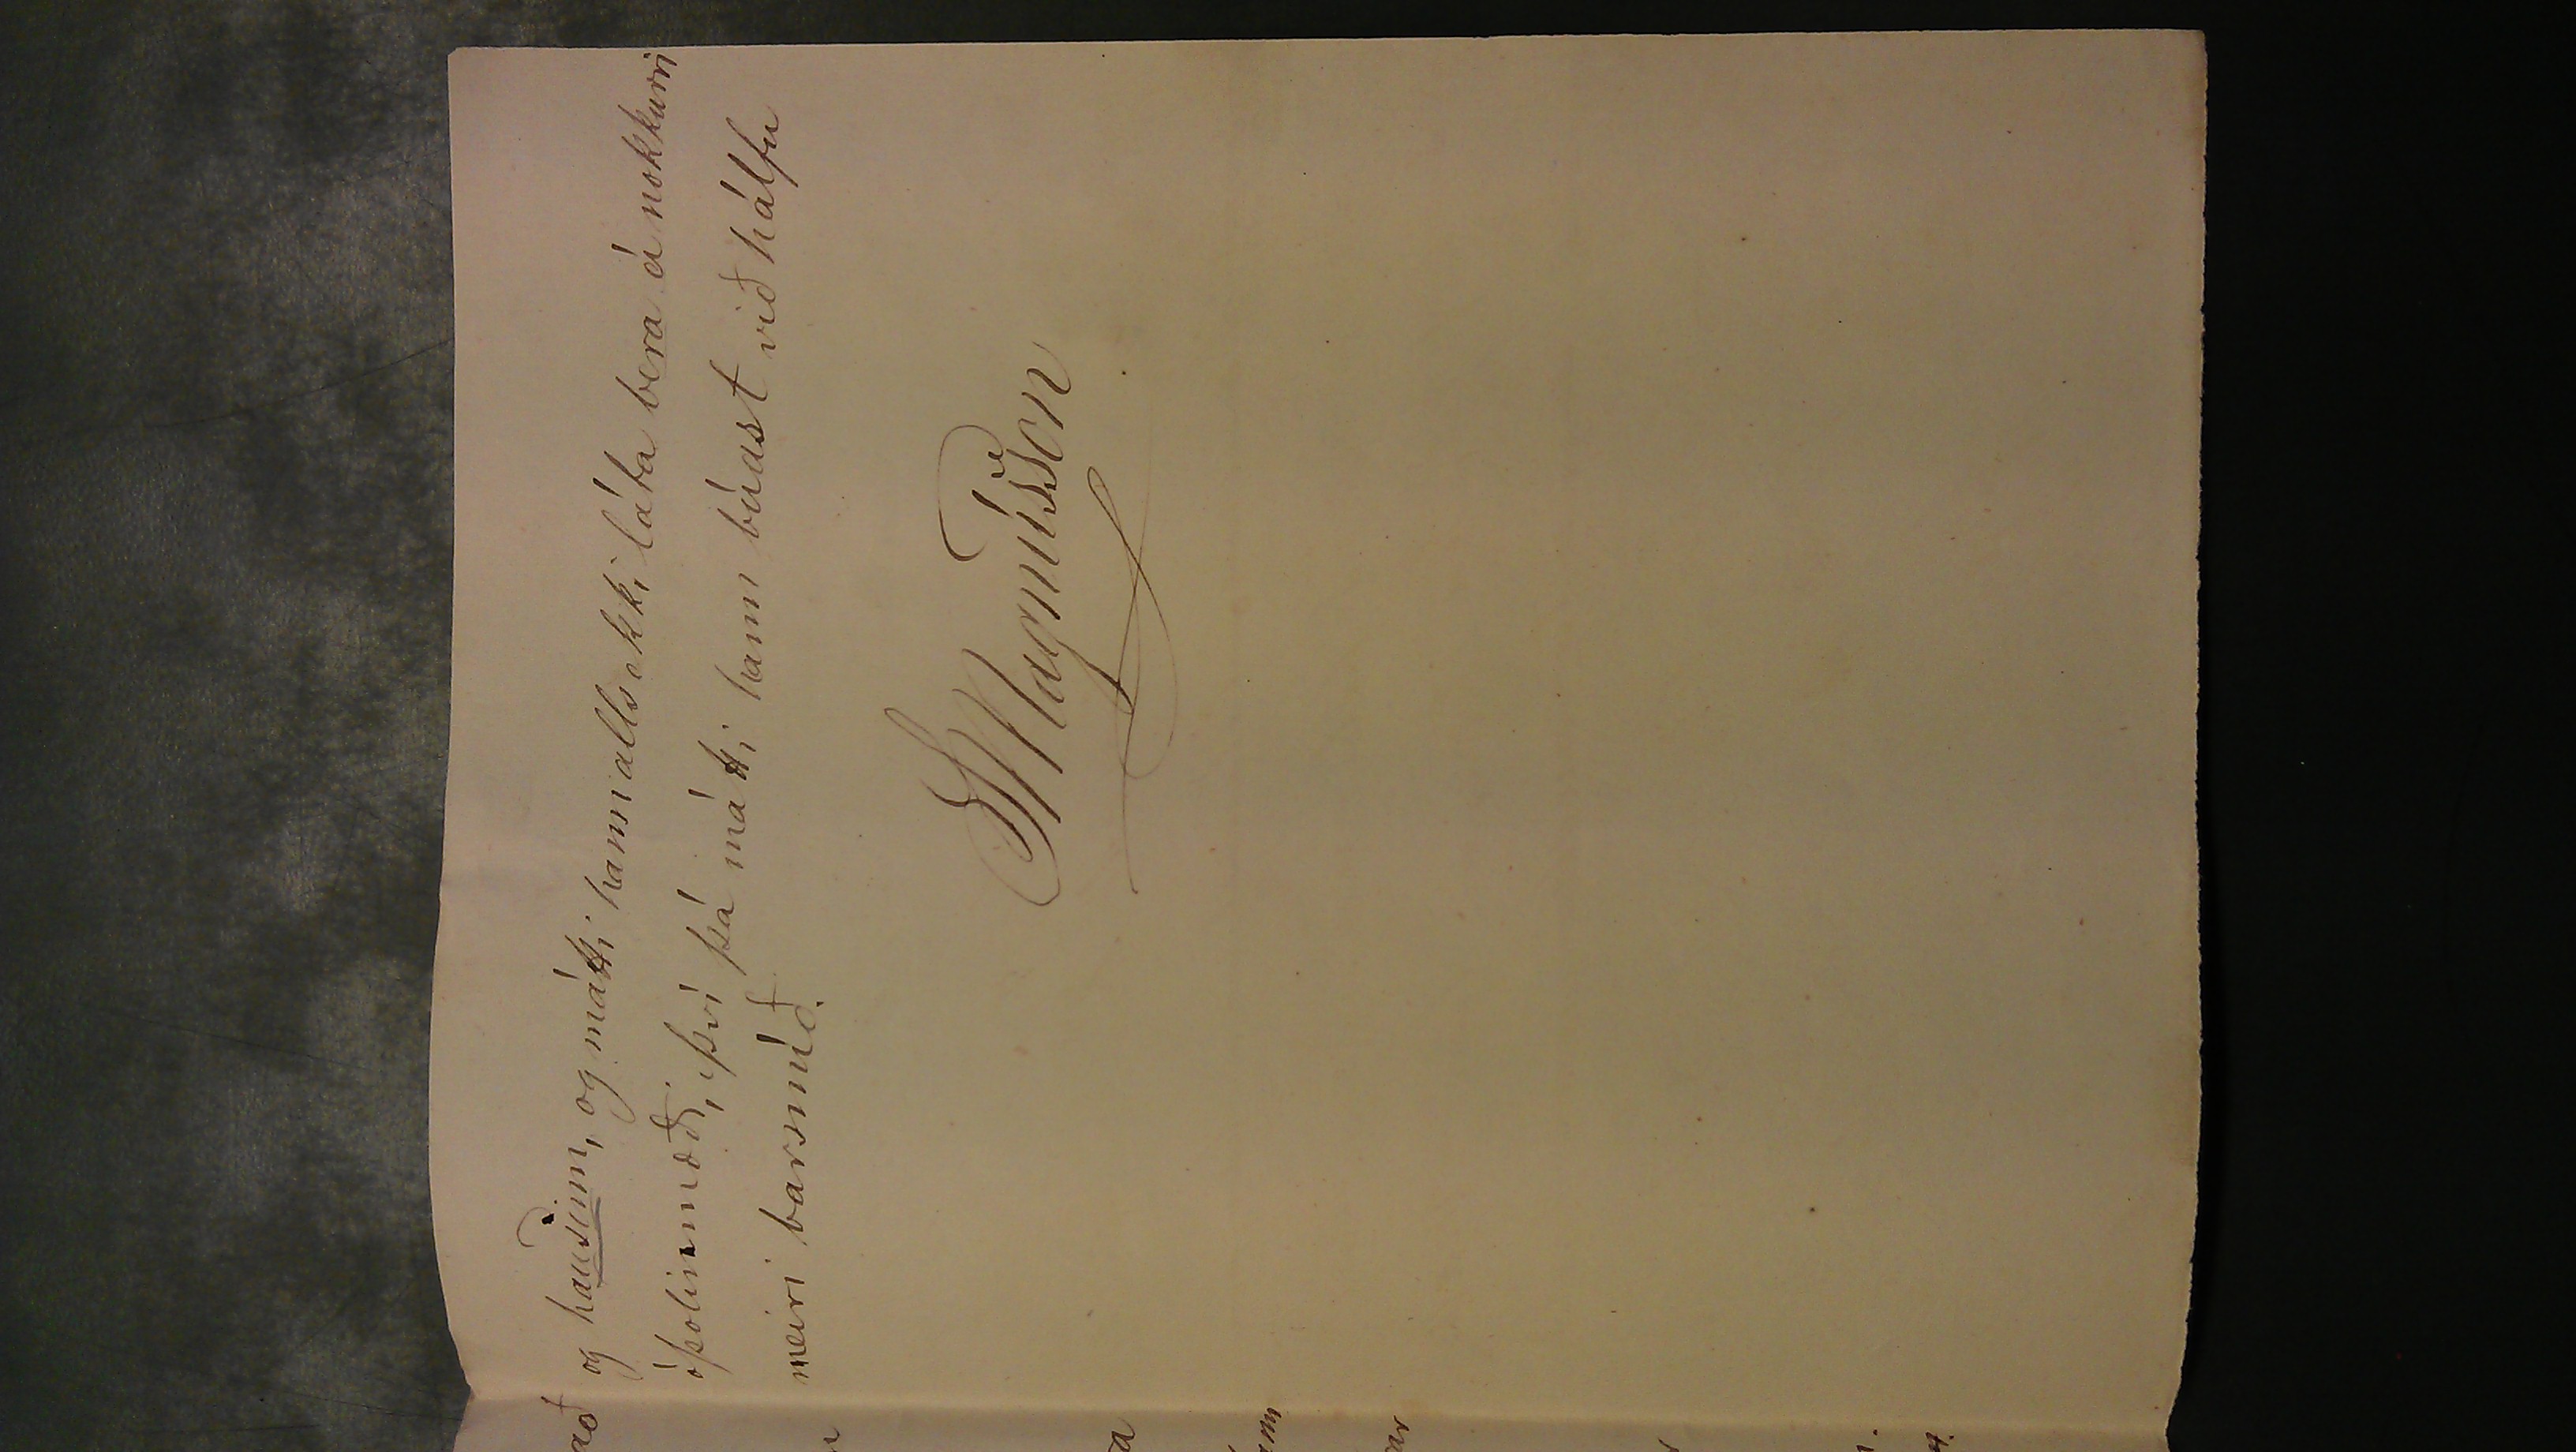 og hausinn, og mátti hann alls ekki láta bera á nokkurri
óþolinmæði, því þá mátti hann búast við hálfu
meiri barsmíð.
SMagnússon